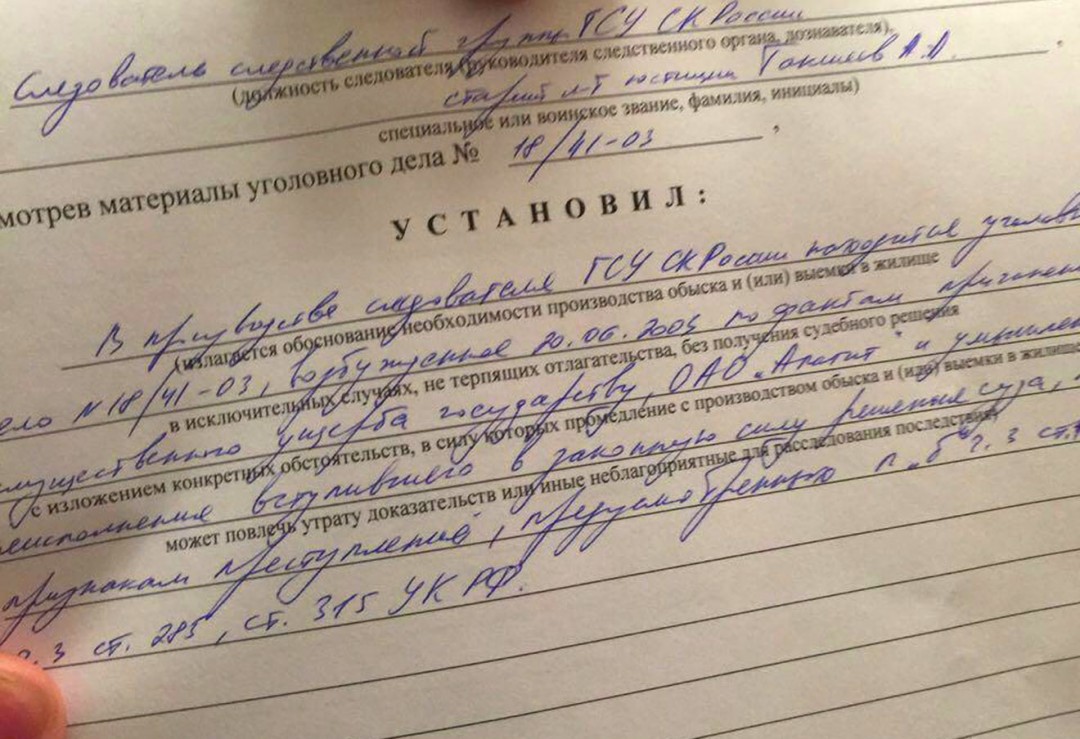 Следователь следственной группы ГСУ СК России
(должность следователя (руководителя следственного органа, дознавателя),
старший л-т юстиции А.Д.
специальное или воинское звание, фамилия, инициалы)
мотрев материалы уголовного дела № 18/41-03 ,
УСТАНОВИЛ:
В производстве следователя ГСУ СК России находится уголовн
(излагается обоснование необходимости производства обыска и (или) выемки в жилище
ело №18/41-03, возбужденное 20.06.2003 по фактам причинен
в исключительных случаях, не терпящих отлагательства, без получения судебного решения
мущественного ущерба государству, ОАО „Апатит" и умышлен
с изложением конкретных обстоятельств, в силу которых промедление с производством обыска и (или) выемки в жилище
еисполнения вступившего в законную силу решения суда,
может повлечь утрату доказательств или иные неблагоприятные для расследования последствия)
признакам преступлений, предусмотренных п. „б" ч. 3 ст.
ч. 3 ст. 285, ст. 315 УК РФ.